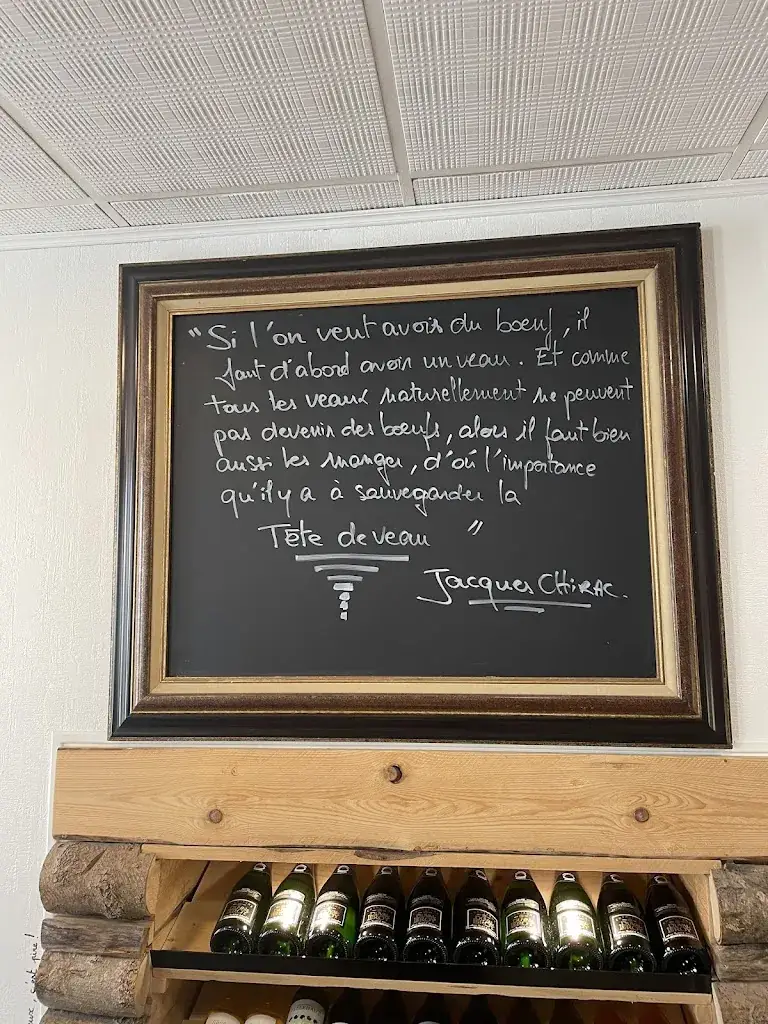 "Si l'on veut avoir du boeuf, il
faut d'abord avoir un veau. Et comme
tous les veaux naturellement ne peuvent
pas devenir des boeufs, alors il faut bien
aussi les manger, d'où l'importance
qu'il y a à sauvegarder la
Tête de veau "
Jacques CHIRAC.
c'est pire !